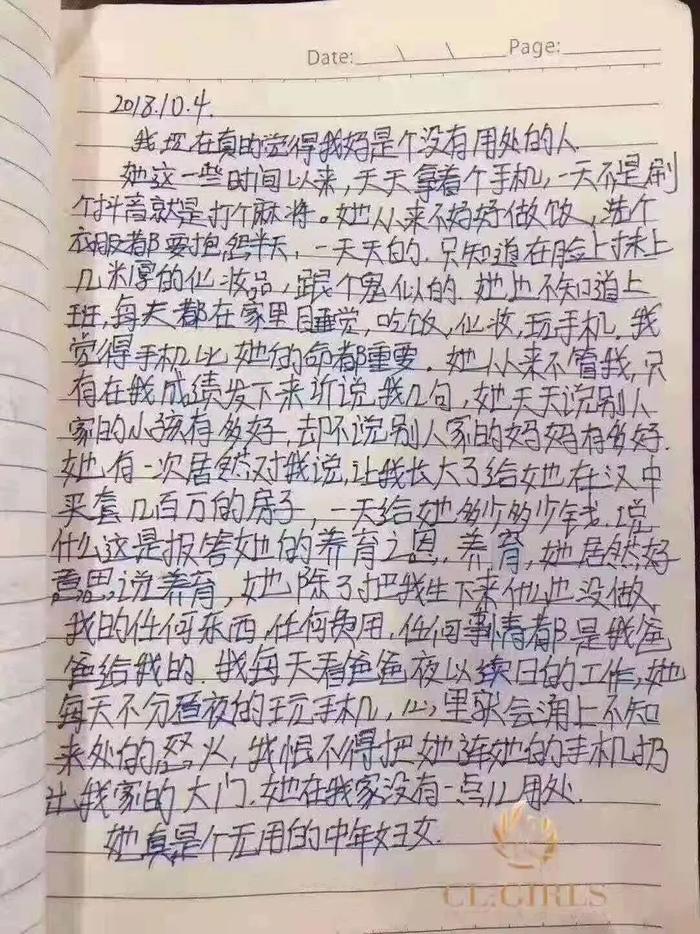 Date: \ \ Page:
2018.10.4.
我现在真的觉得我妈是个没有用处的人
她这一些时间以来，天天拿着个手机，一天不是刷
个抖音就是打个麻将。她从来不好好做饭，洗个
衣服都要抱怨半天，一天天的，只知道在脸上抹上
几米厚的化妆品，跟个鬼似的。她也不知道上
班，每天都在家里睡觉，吃饭，化妆，玩手机。我
觉得手机比她的命都重要。她从来不管我，只
有在我成绩发下来诉说我几句，她天天说别人
家的小孩有多好，却不说别人家的妈妈有多好。
她有一次居然对我说，让我长大了给她在汉中
买套几百万的房子，一天给她多少多少钱，说
什么这是报答她的养育之恩，养育，她居然好
意思说养育，她除了把我生下来什么也没做，
我的任何东西，任何费用，任何事情都是我爸
爸给我的。我每天看爸爸夜以续日的工作，她
每天不分昼夜的玩手机，心里就会涌上不知
来处的怒火，我恨不得把她连她的手机扔
出我家的大门。她在我家没有一点儿用处。
她真是个无用的中年妇女。
CL:GIRLS